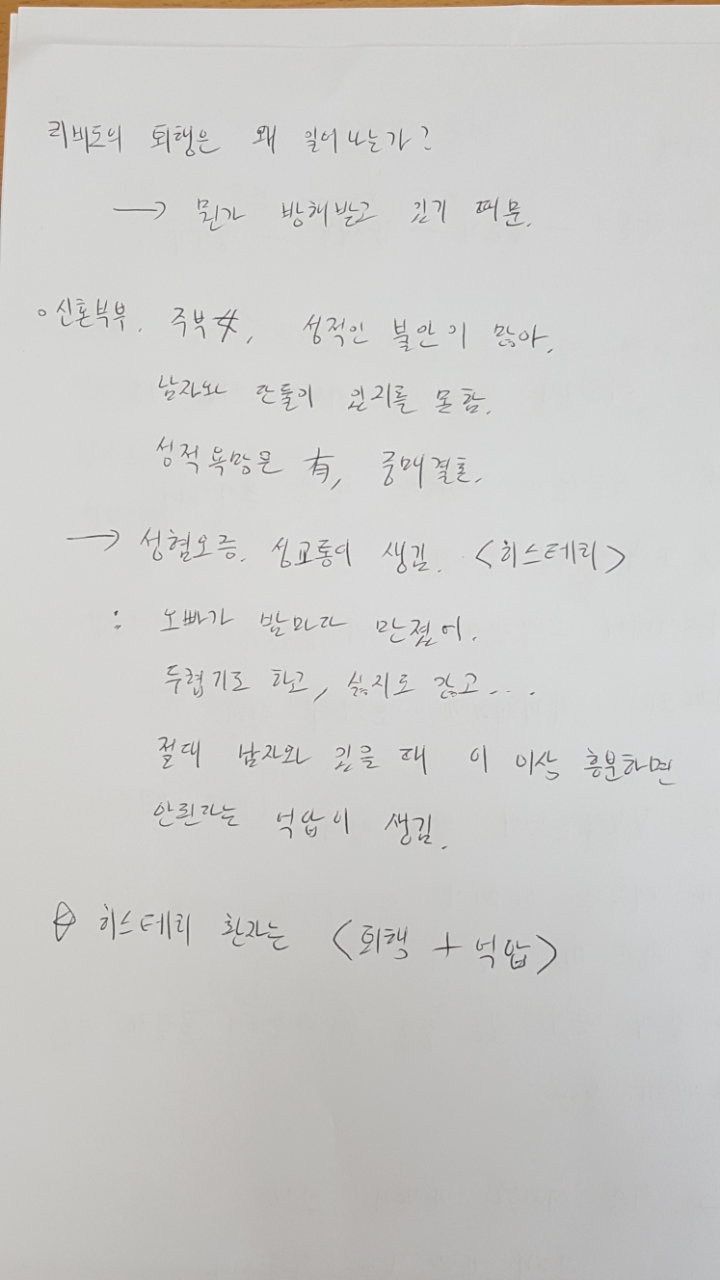 리비도의 퇴행은 왜 일어나는가?
→ 뭔가 방해받고 있기 때문.
◦ 신혼부부. 주부女, 성적인 불안이 많아.
남자와 단둘이 있지를 못함.
성적 욕망은 有, 중매결혼.
→ 성혐오증. 성교통이 생김. <히스테리>
: 오빠가 밤마다 만졌어.
두렵기도 하고, 싫지도 않고...
절대 남자와 있을 때 이 이상 흥분하면
안된다는 억압이 생김.
☆ 히스테리 환자는 <퇴행 + 억압>